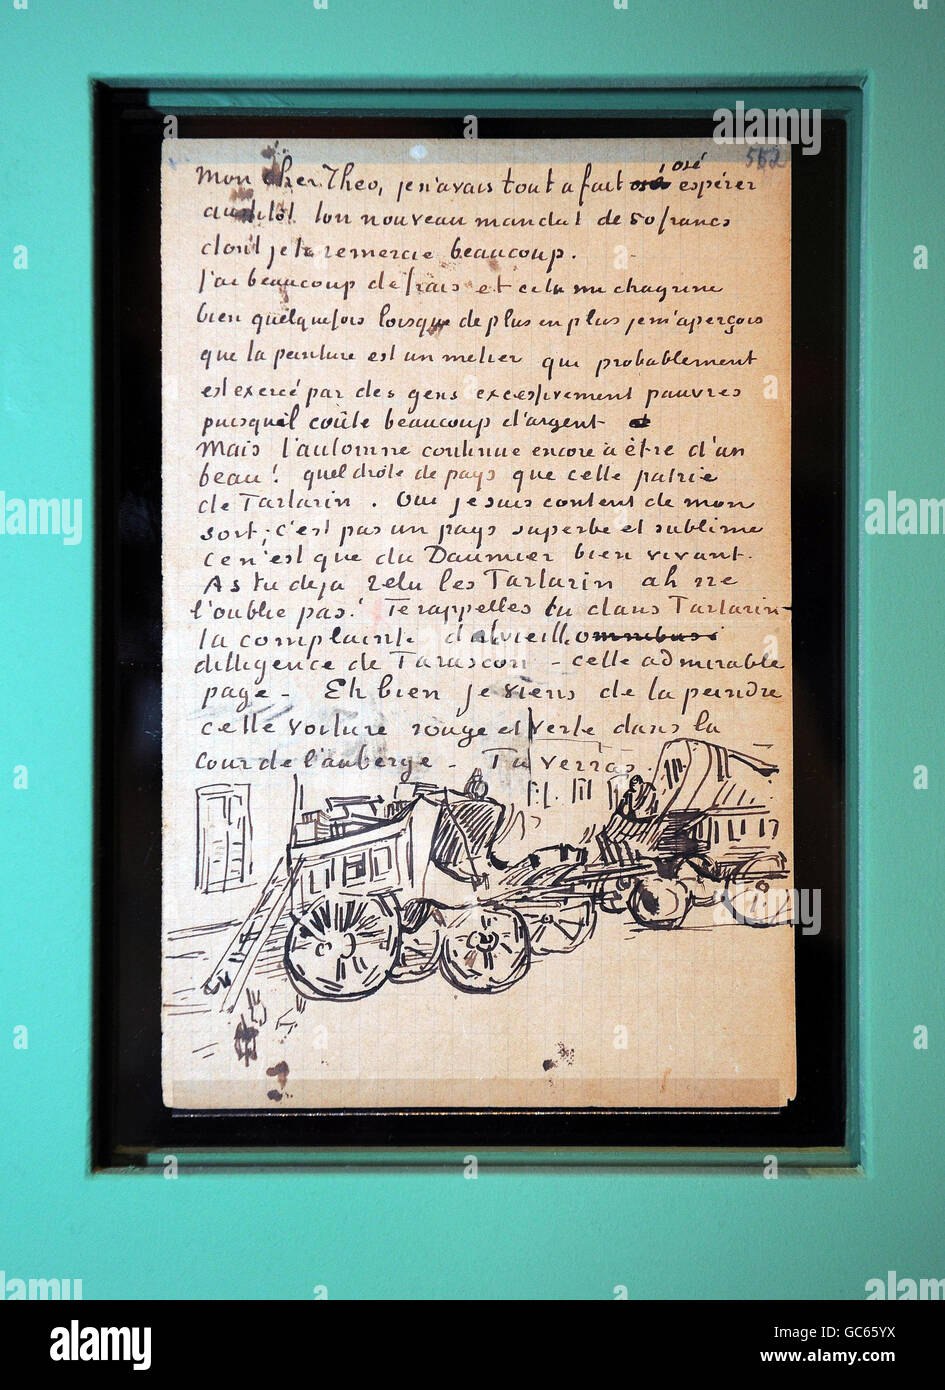 552
Mon cher Theo, je n'avais tout a fait osé osé espérer
aussitôt ton nouveau mandat de 50 francs
dont je te remercie beaucoup.
J'ai beaucoup de frais et cela me chagrine
bien quelquefois lorsque de plus en plus je m'aperçois
que la peinture est un metier que probablement
est exercé par des gens excessivement pauvres
puisqu'il coûte beaucoup d'argent
Mais l'automne continue encore a être d'un
beau! quel drôle de pays que cette patrie
de Tartarin. Oui je suis content de mon
sort; c'est pas un pays superbe et sublime
ce n'est que du Daumier bien vivant.
As tu deja relu les Tartarin ah ne
l'oublie pas! Te rappelles tu dans Tartarin
la complainte de la vieille omnibus
dilligence de Tarascon – cette admirable
page – Eh bien je viens de la peindre
cette voiture rouge et verte dans la
cour de l'auberge – Tu verras.
alamy
Image ID: GC65YX
www.alamy.com